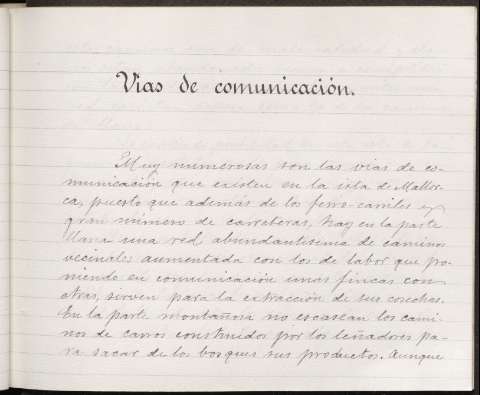 Vias de comunicación.
Muy numerosas son las vias de co-
municación que existen en la isla de Mallor-
ca, puesto que además de los ferro-carriles y
gran número de carreteras, hay en la parte
llana una red abundantisima de caminos
vecinales aumentada con los de labor que po-
niendo en comunicación unas fincas con
otras, sirven para la extracción de sus cosechas.
En la parte montañosa no escasean los cami-
nos de carros construidos por los leñadores pa-
ra sacar de los bosques sus productos. Aunque